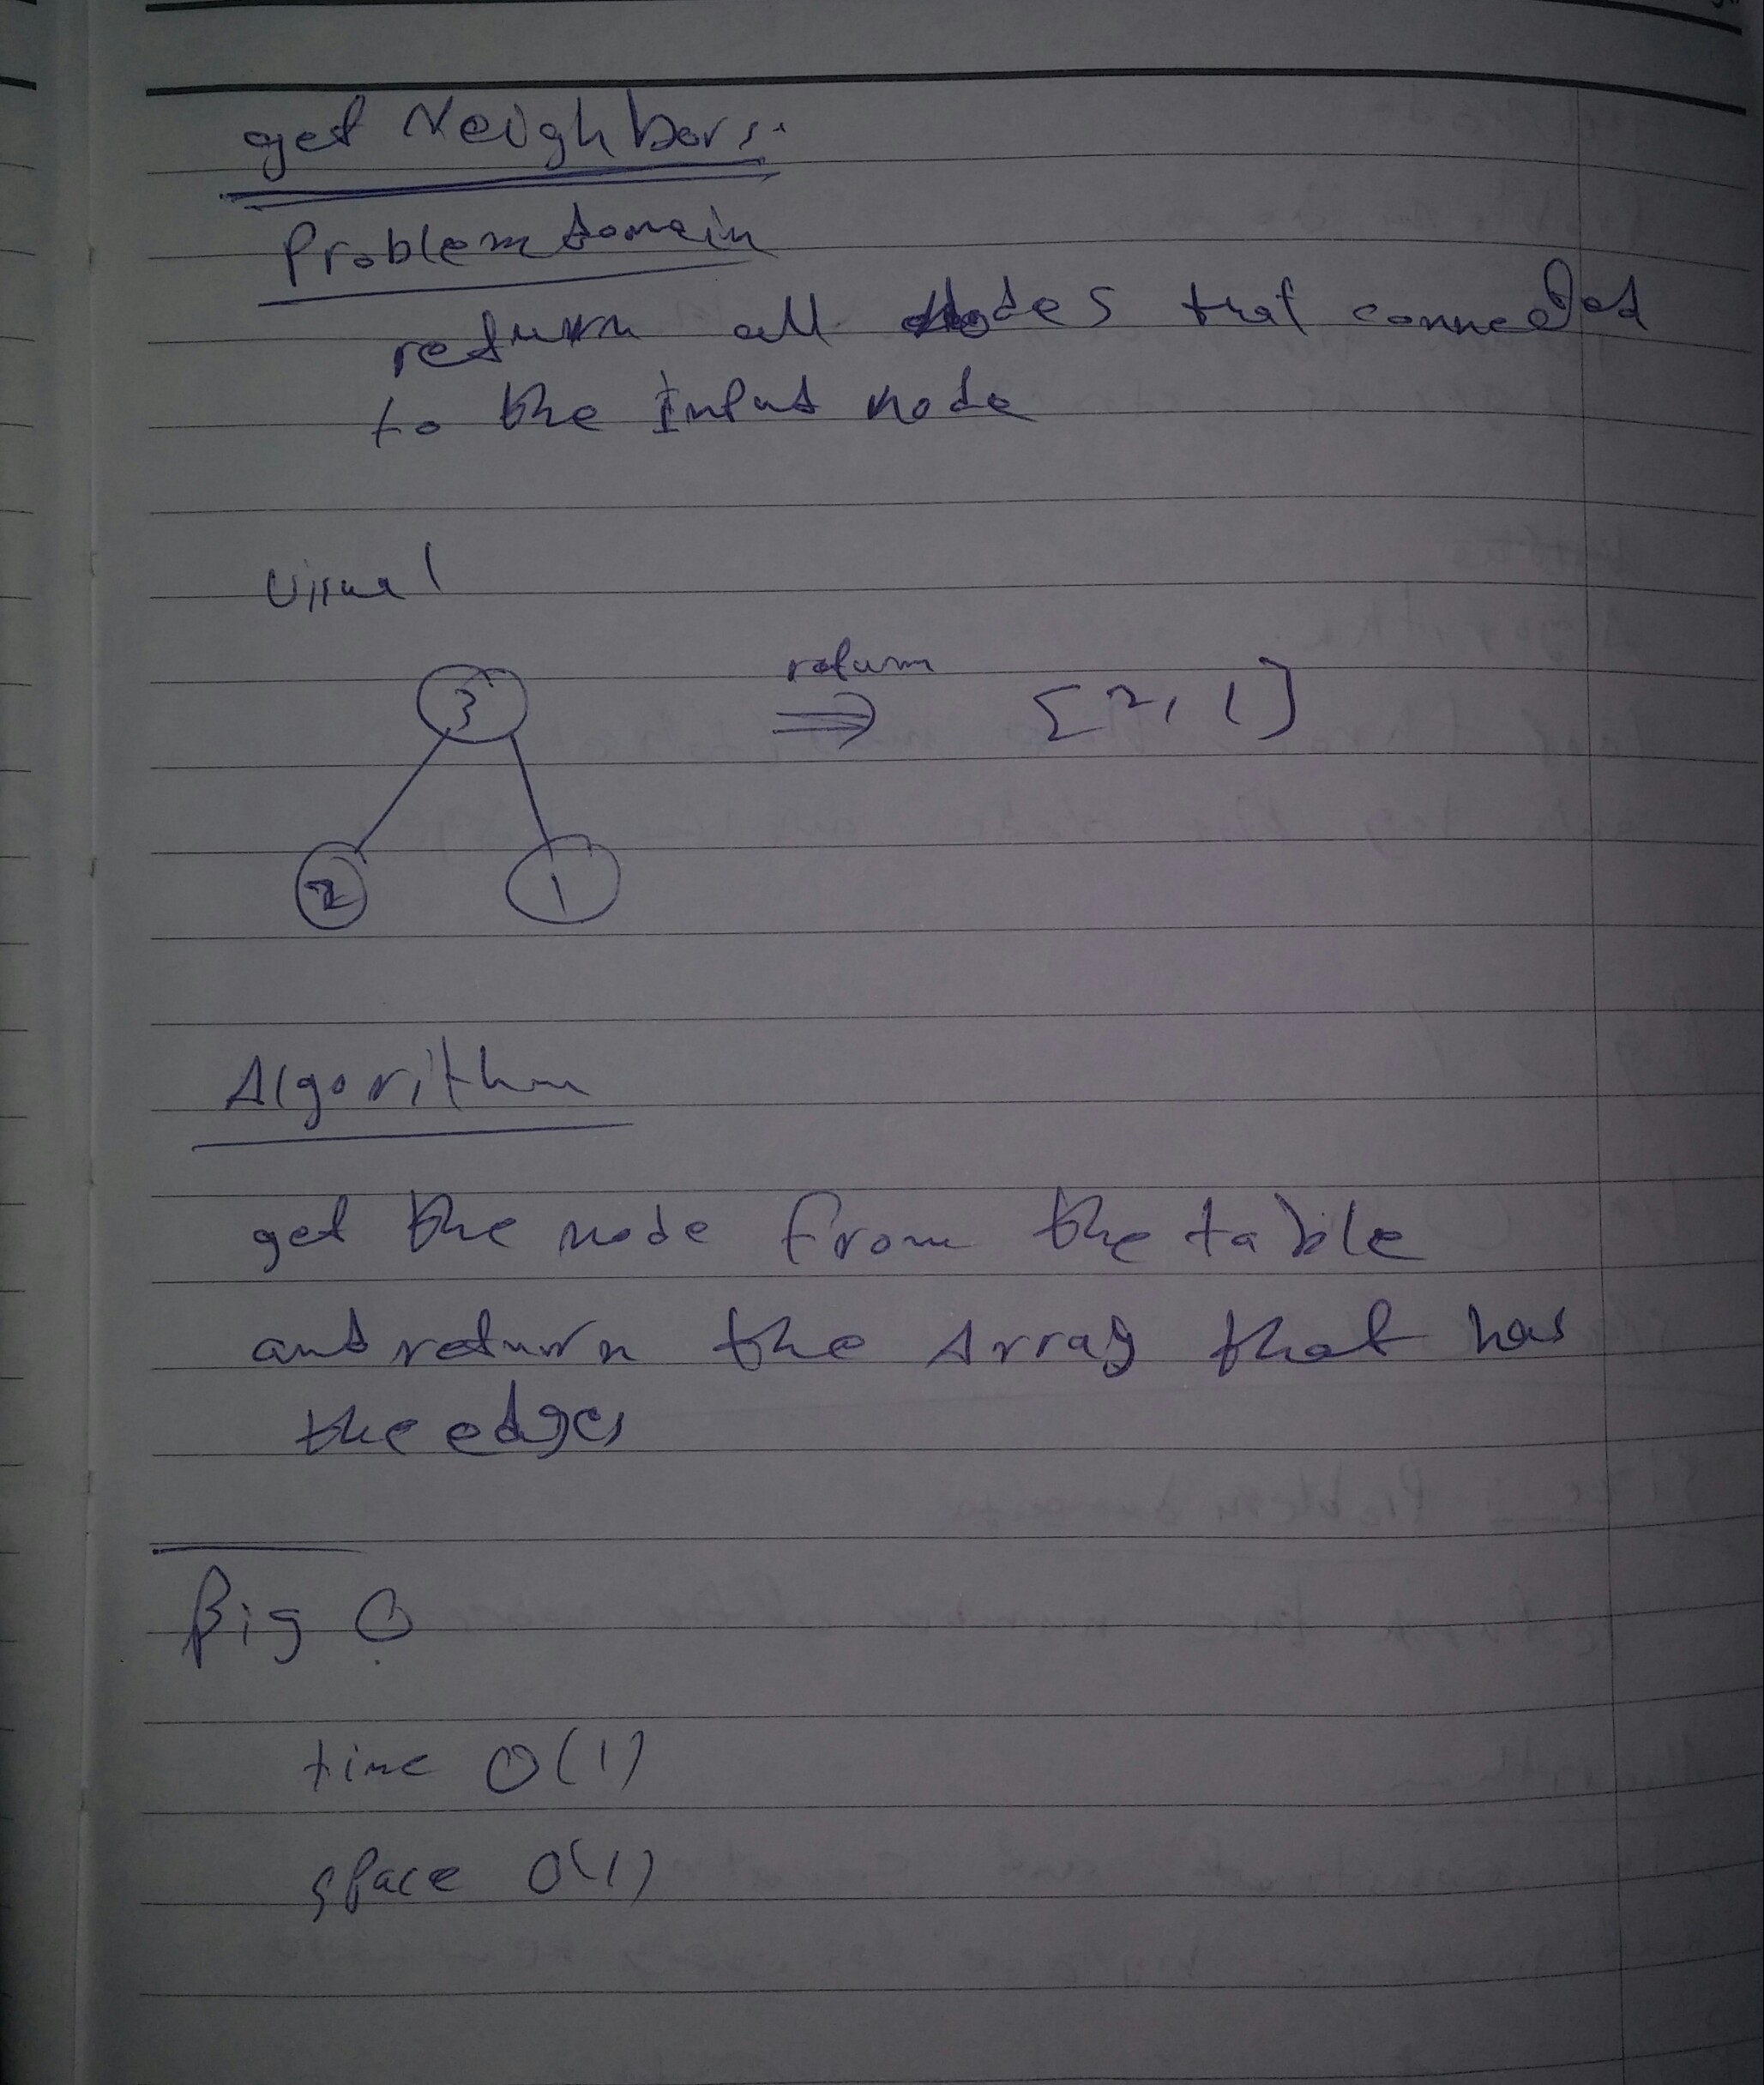 get Neighbors:
Problem domain
return all nodes that connected
to the Input node
Visual
3
return
⇒ [2, 1]
2 1
Algorithm
get the node from the table
and return the Array that has
the edges
Big O
time O(1)
space O(1)